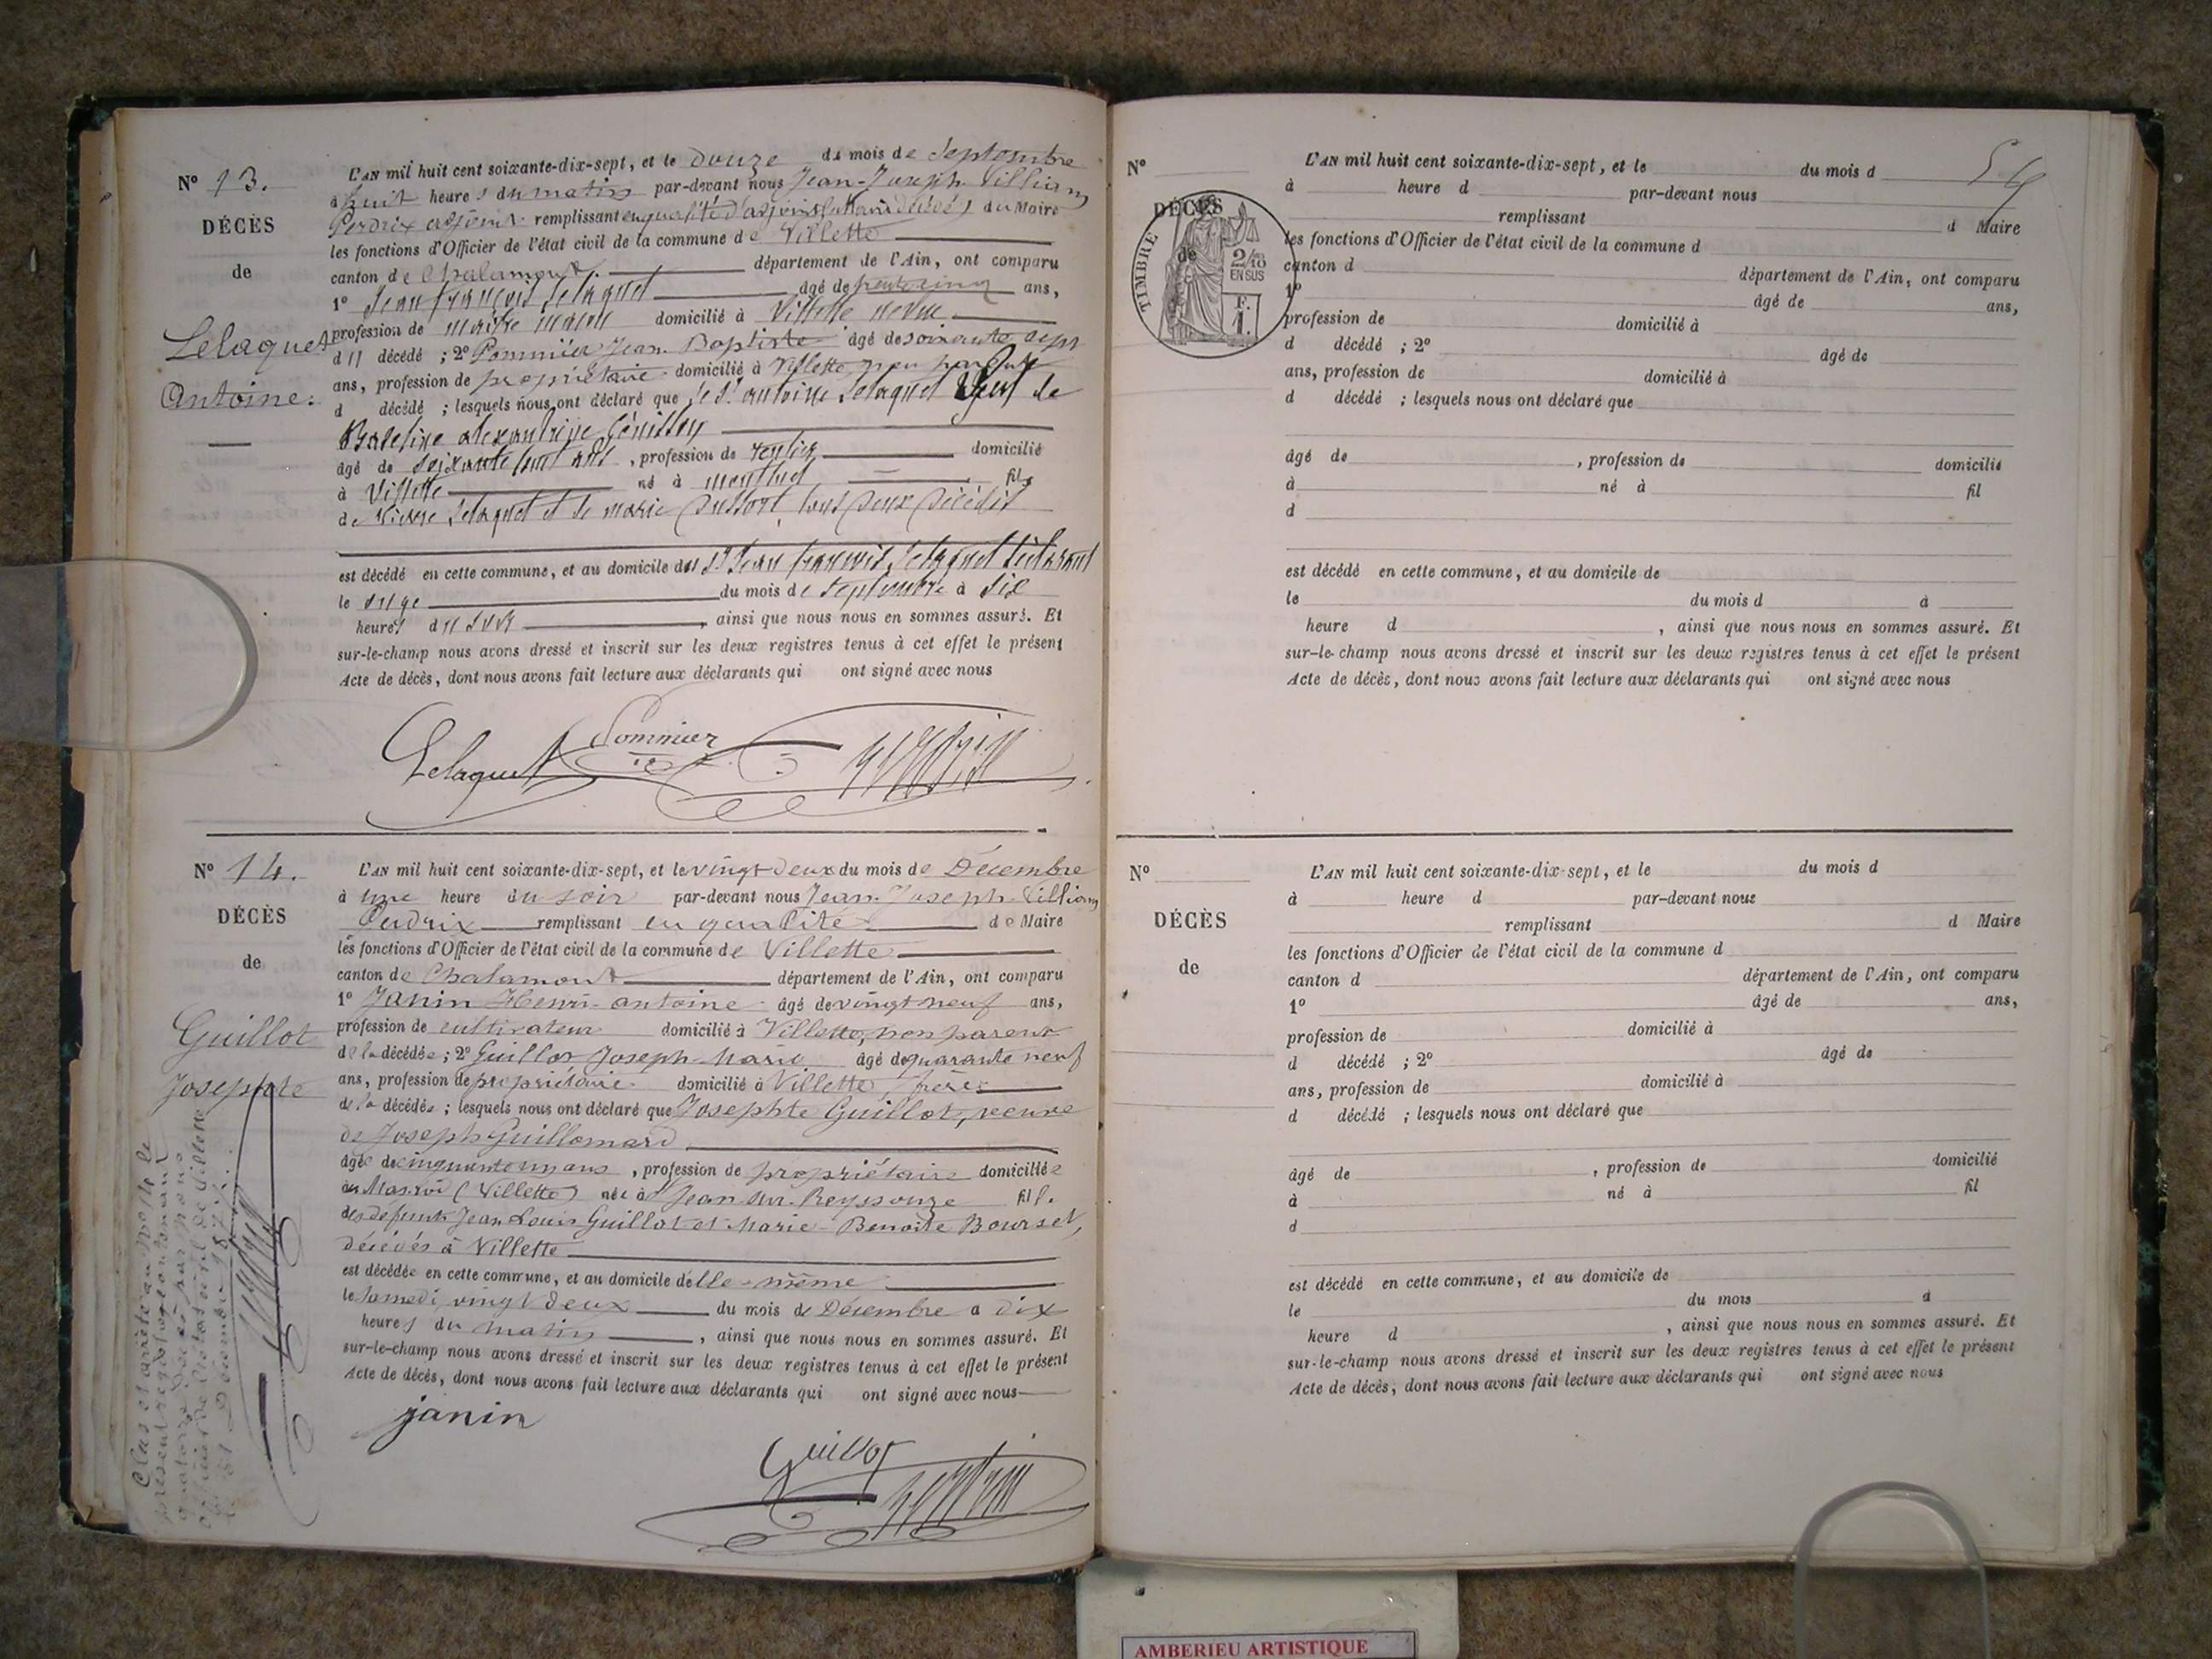 N° 13.
DÉCÈS
de
Lelaquet
Antoine.
L'AN mil huit cent soixante-dix-sept, et le douze du mois de Septembre
à huit heures du matin par-devant nous Jean-Joseph Villiam
Perdrix adjoint remplissant en qualité d'adjoint du Maire
les fonctions d'Officier de l'état civil de la commune de Villette
canton de Chalamont. département de l'Ain, ont comparu
1° Jean françois Lelaquet âgé de trente cinq ans,
profession de maitre maçon domicilié à Villette neveu
du décédé ; 2° Pommier Jean Baptiste âgé de soixante sept
ans, profession de propriétaire domicilié à Villette non parent
d décédé ; lesquels nous ont déclaré que le Sr antoine Lelaquet de
alexandrine
âgé de soixante ans, profession de rentier domicilié
à Villette né à montluel fils
de Pierre Lelaquet et de marie tous deux décédés
est décédé en cette commune, et au domicile du Sr Jean françois Lelaquet déclarant
le onze du mois de Septembre à six
heures du soir, ainsi que nous nous en sommes assuré. Et
sur-le-champ nous avons dressé et inscrit sur les deux registres tenus à cet effet le présent
Acte de décès, dont nous avons fait lecture aux déclarants qui ont signé avec nous
Pommier
Lelaquet
N° 14.
DÉCÈS
de
Guillot
Josephte
L'AN mil huit cent soixante-dix-sept, et le vingt deux du mois de Décembre
à une heure du soir par-devant nous Jean-Joseph Villiam
Perdrix remplissant en qualité de Maire
les fonctions d'Officier de l'état civil de la commune de Villette
canton de Chalamont département de l'Ain, ont comparu
1° Janin Henri-antoine âgé de vingt neuf ans,
profession de cultivateur domicilié à Villette, non parent
de la décédée ; 2° Guillot Joseph-Marie âgé de quarante neuf
ans, profession de propriétaire domicilié à Villette, frère
de la décédée ; lesquels nous ont déclaré que Josephte Guillot, veuve
de Joseph Guillomard
âgée de cinquante un ans, profession de propriétaire domiciliée
au Mas roi (Villette) née à St Jean sur Reyssouze fille
des defunts Jean Louis Guillot et Marie-Benoite Bourset,
décédés à Villette
est décédée en cette commune, et au domicile d'elle-même
le Samedi vingt deux du mois de Décembre à dix
heures du matin, ainsi que nous nous en sommes assuré. Et
sur-le-champ nous avons dressé et inscrit sur les deux registres tenus à cet effet le présent
Acte de décès, dont nous avons fait lecture aux déclarants qui ont signé avec nous
janin
Guillot
Clos et arrêté au no 14 le
présent registre contenant
quatorze décès par nous
officier de l'état civil de Villette
le 31 Décembre 1877.
54
N°
DÉCÈS
de
TIMBRE
2/10
EN SUS
F.
1.
L'AN mil huit cent soixante-dix-sept, et le du mois d
à heure d par-devant nous
remplissant d Maire
les fonctions d'Officier de l'état civil de la commune d
canton d département de l'Ain, ont comparu
1° âgé de ans,
profession de domicilié à
d décédé ; 2° âgé de
ans, profession de domicilié à
d décédé ; lesquels nous ont déclaré que
âgé de , profession de domicilié
à né à fil
d
est décédé en cette commune, et au domicile de
le du mois d à
heure d , ainsi que nous nous en sommes assuré. Et
sur-le-champ nous avons dressé et inscrit sur les deux registres tenus à cet effet le présent
Acte de décès, dont nous avons fait lecture aux déclarants qui ont signé avec nous
N°
DÉCÈS
de
L'AN mil huit cent soixante-dix-sept, et le du mois d
à heure d par-devant nous
remplissant d Maire
les fonctions d'Officier de l'état civil de la commune d
canton d département de l'Ain, ont comparu
1° âgé de ans,
profession de domicilié à
d décédé ; 2° âgé de
ans, profession de domicilié à
d décédé ; lesquels nous ont déclaré que
âgé de , profession de domicilié
à né à fil
d
est décédé en cette commune, et au domicile de
le du mois d
heure d , ainsi que nous nous en sommes assuré. Et
sur-le-champ nous avons dressé et inscrit sur les deux registres tenus à cet effet le présent
Acte de décès, dont nous avons fait lecture aux déclarants qui ont signé avec nous
AMBERIEU ARTISTIQUE